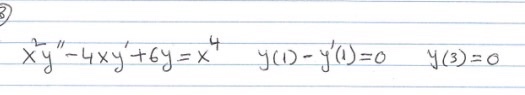 x²y''-4xy'+6y=x⁴ y(1)-y'(1)=0 y(3)=0